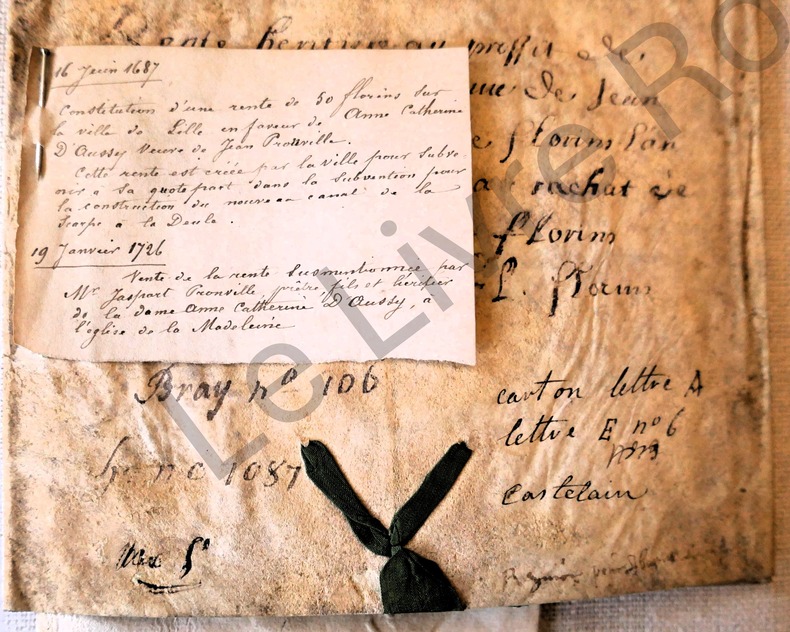 Rente heritiere au proffit de
16 Juin 1687
Constitution d'une rente de 50 florins sur
la ville de Lille en faveur de Anne Catherine
D'Aussy Veuve de Jean Pronville.
Cette rente est créée par la ville pour subve-
nir à sa quote part dans la subvention pour
la construction du nouveau canal de la
Scarpe à la Deule.
19 Janvier 1726
Vente de la rente susmentionnée par
Mr Jaspart Pronville, prêtre, fils et héritier
de la dame Anne Catherine D'Aussy, à
l'église de la Madeleine
de Jean
florins l'an
rachat de
florins
florins
Bray no 106
carton lettre A
lettre E no 6
no 1087
Castelain
Le Livre Ro